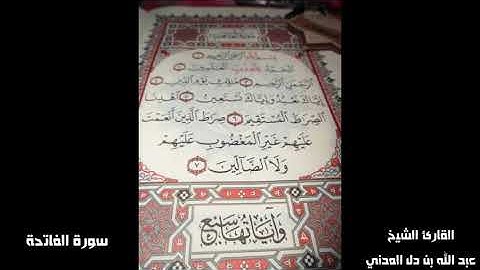 بِسْمِ اللَّهِ الرَّحْمَٰنِ الرَّحِيمِ ١
الْحَمْدُ لِلَّهِ رَبِّ الْعَالَمِينَ ٢
الرَّحْمَٰنِ الرَّحِيمِ ٣ مَالِكِ يَوْمِ الدِّينِ ٤
إِيَّاكَ نَعْبُدُ وَإِيَّاكَ نَسْتَعِينُ ٥ اهْدِنَا
الصِّرَاطَ الْمُسْتَقِيمَ ٦ صِرَاطَ الَّذِينَ أَنْعَمْتَ
عَلَيْهِمْ غَيْرِ الْمَغْضُوبِ عَلَيْهِمْ
وَلَا الضَّالِّينَ ٧
وآياتها سبع
سورة الفاتحة
القارئ الشيخ
عبد الله بن دل المدني